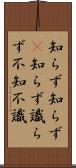 知らず知らず
×知らず識ら
ず不知不識